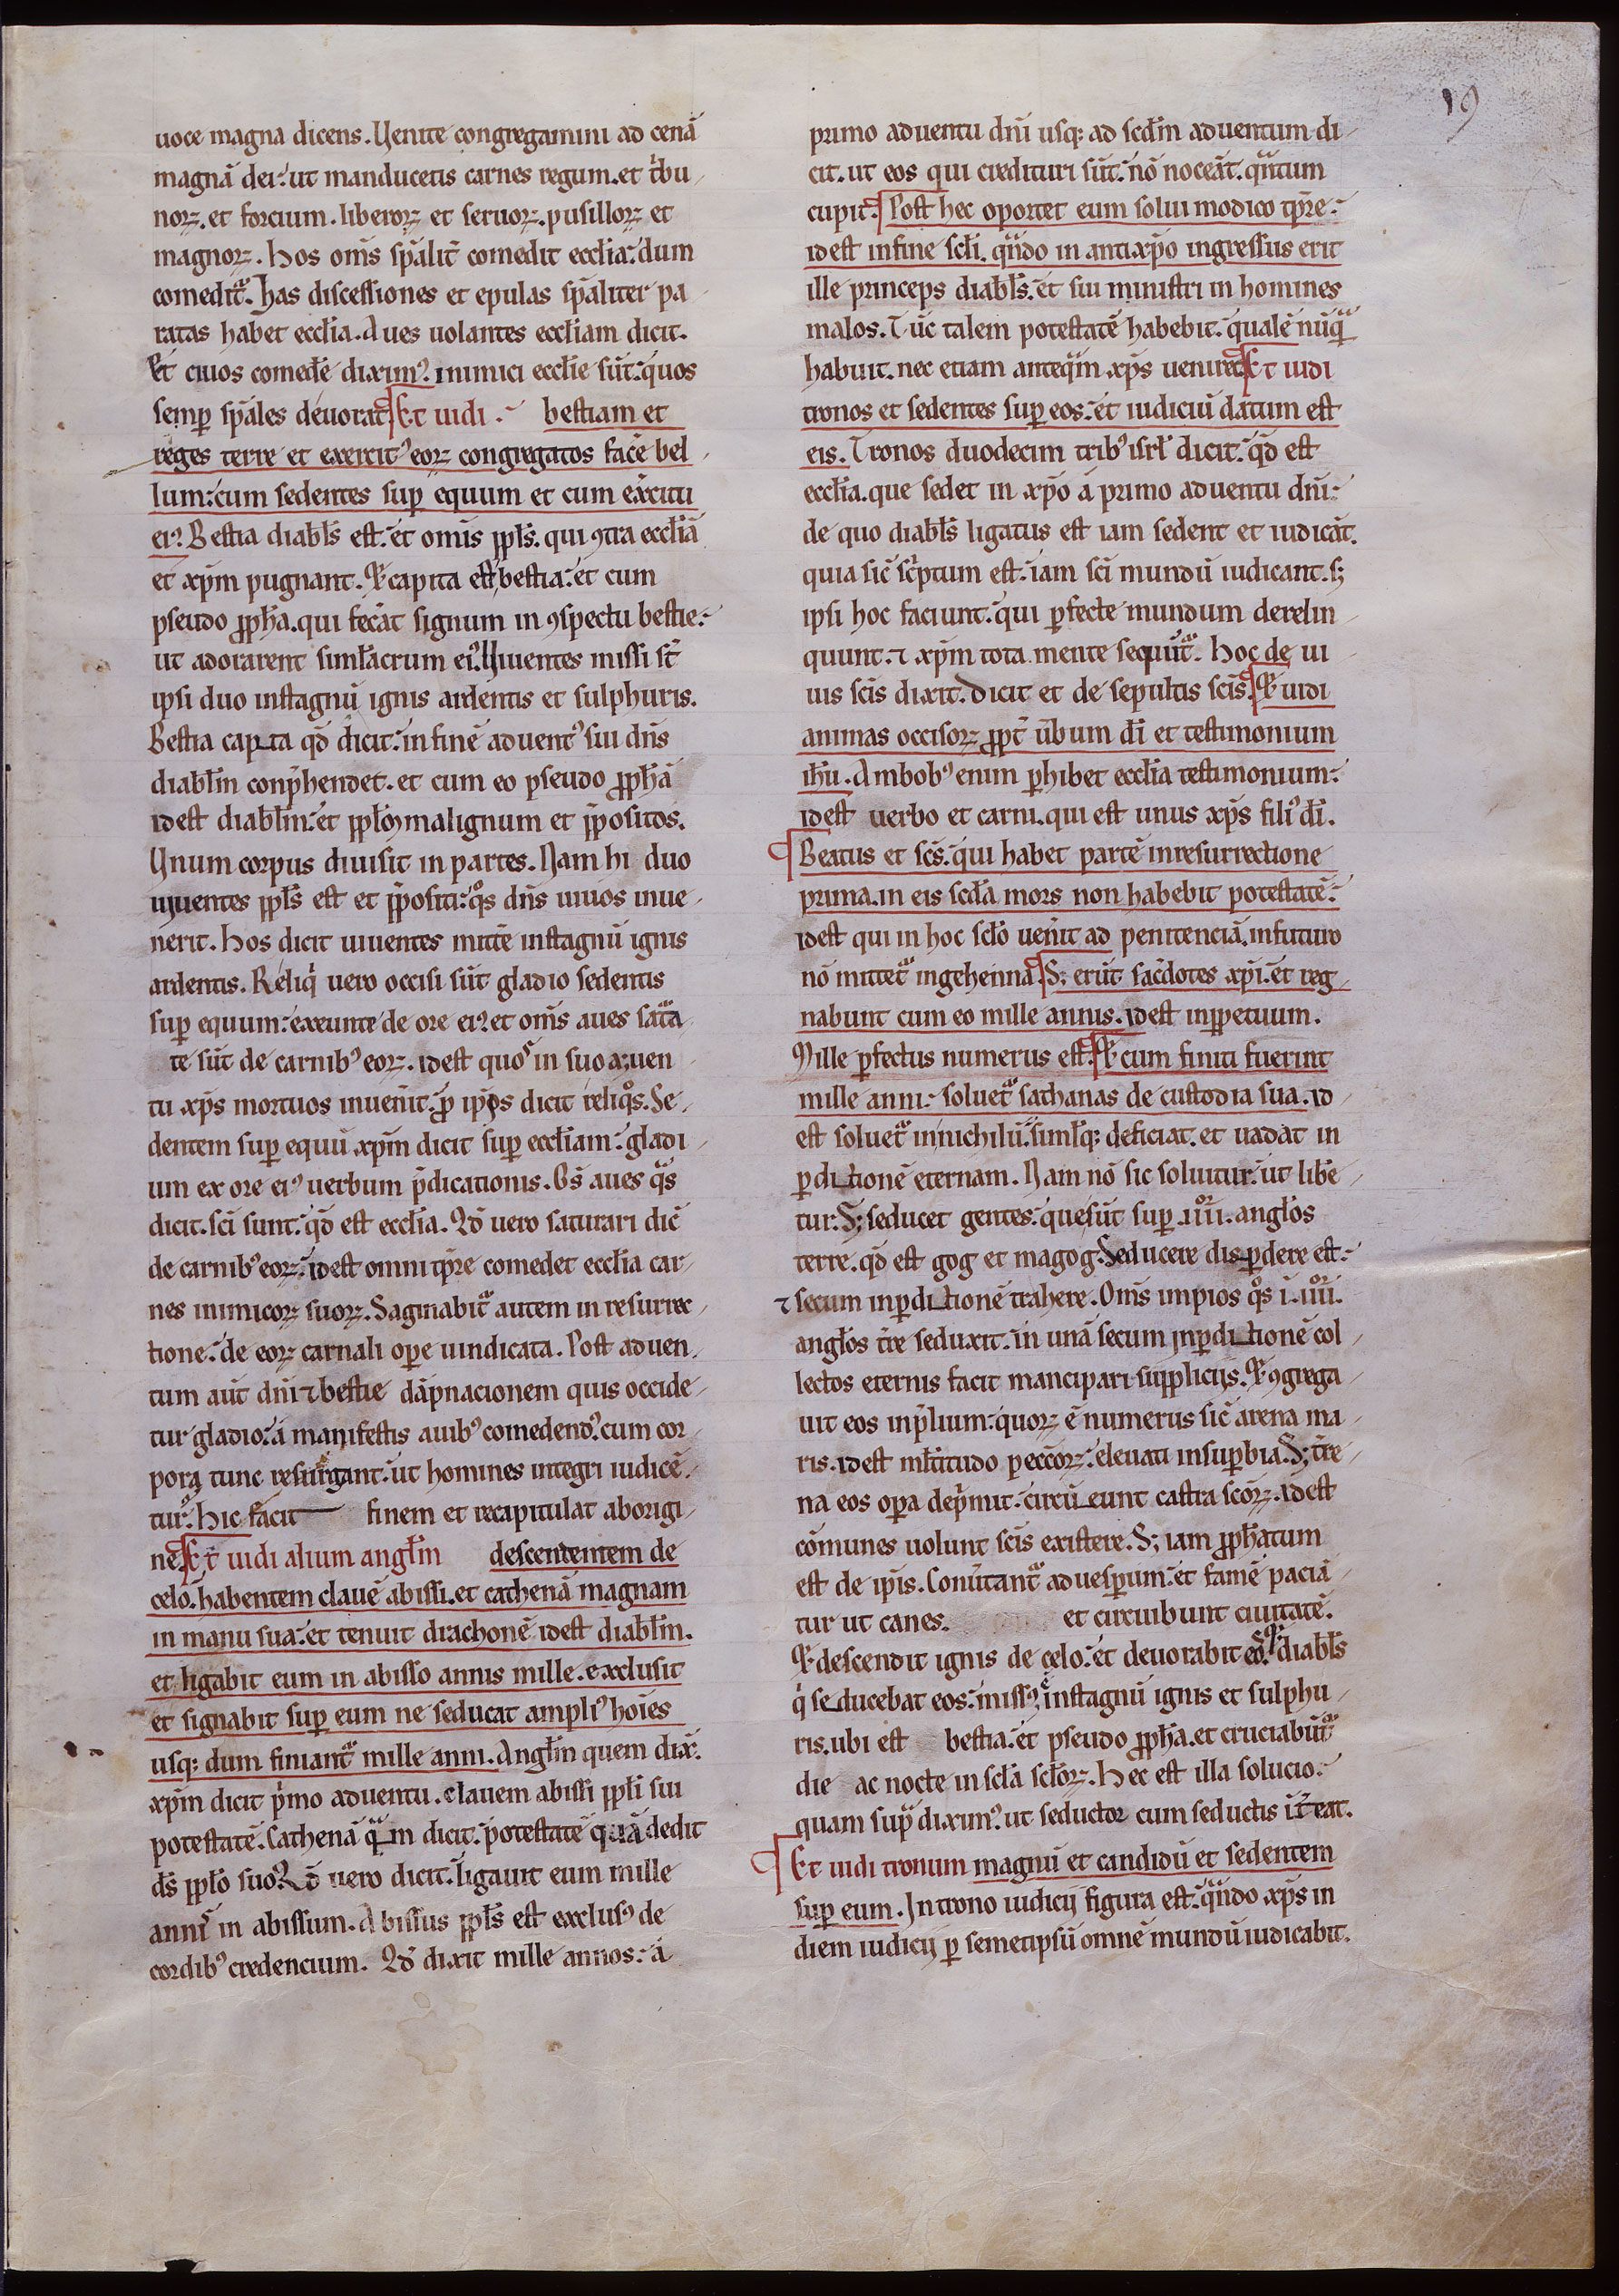 19
uoce magna dicens. Uenite congregamini ad cenā
magnā dei: ut manducetis carnes regum. et t̄bu
noꝝ. et forcium. liberoꝝ et seruoꝝ. pusilloꝝ et
magnoꝝ. hos om̄s sp̄alit̄ comedit eccl̄ia: dum
comedit᷑. has discessiones et epulas sp̄aliter pa
ratas habet eccl̄ia. Aues uolantes eccl̄iam dicit.
Et ciuos comed̄e diximꝰ. inimici eccl̄ie sūt: quos
semꝑ sp̄ales deuorat. Et uidi. bestiam et
reges terre et exercitꝰ eoꝝ congregatos fac̄e bel
lum: cum sedentes suꝑ equum et cum ex̄citu
eiꝰ. Bestia diabl̄s est. et om̄is ppl̄s. qui ꝯtra eccl̄iā
et xp̄m pugnant. Et capta est bestia: et cum
pseudo ꝓph̄a. qui fecāt signum in ꝯspectu bestie:
ut adorarent siml̄acrum eiꝰ. Uiuentes missi st̄
ipsi duo instagnū ignis ardentis et sulphuris.
Bestia capta qd̄ dicit: infinē aduentꝰ sui dn̄s
diabl̄m conp̄hendet. et cum eo pseudo ꝓph̄ā
idest diabl̄m: et ppl̄m malignum et p̄positos.
Unum corpus diuisit in partes. Nam hi duo
uiuentes ppl̄s est et p̄positi: qͦs dn̄s uiuos inue
nerit. hos dicit uiuentes mitt̄e instagnū ignis
ardentis. Reliqͥ uero occisi sūt gladio sedentis
suꝑ equum: exeunte de ore eiꝰ. et om̄s aues satͣa
te sūt de carnibꝰ eoꝝ. idest quos in suo aduen
tu xp̄s mortuos inuen̄it. ꝓ ip̄os dicit reliqͦs. Se
dentem suꝑ equū xp̄m dicit suꝑ eccl̄iam: gladi
um ex ore eiꝰ uerbum p̄dicationis. Om̄s aues qͣs
dicit. sc̄i sunt. qd̄ est eccl̄ia. Qd̄ uero saturari dic̄
de carnibꝰ eoꝝ: idest omni tp̄re comedet eccl̄ia car
nes inimicoꝝ suoꝝ. Saginabit᷑ autem in resurrec
tione: de eoꝝ carnali oꝑe uindicata. Post aduen
tum aūt dn̄i ⁊ bestie dāpnacionem quis occide
tur gladio: a manifestis auibꝰ comedendꝰ. cum cor
pora tunc resurgant: ut homines integri iudicē
tur. hic facit finem et recapitulat aborigi
ne. Et uidi alium angl̄m descententem de
celo. habentem clauē abissi. et cathenā magnam
in manu sua: et tenuit drachonē idest diabl̄m.
et ligabit eum in abisso annis mille. exclusit
et signabit suꝑ eum ne seducat ampliꝰ hoīes
usqꝫ dum finiant᷑ mille anni. Angl̄m quem dix̄:
xp̄m dicit pͥmo aduentu. clauem abissi ppl̄i sui
potestatē. Cathenā qͣm dicit: potestatē quā dedit
ds̄ ppl̄o suo. Qd̄ uero dicit: ligauit eum mille
annis in abissum. Abissus ppl̄s est exclusꝰ de
cordibꝰ credencium. Qd̄ dixit mille annos: a
primo aduentu dn̄i usqꝫ ad scd̄m aduentum di
cit. ut eos qui credituri sūt: nō noceāt. qͣntum
cupit. Post hec oportet eum solui modico tp̄re:
idest infine scl̄i. qͣndo in antixp̄o ingressus erit
ille princeps diabl̄s. et sui ministri in homines
malos. Tūc talem potestatē habebit. qualē nūqͣ
habuit. nec etiam anteqͣm xp̄s ueniret. Et uidi
tronos et sedentes suꝑ eos: et iudiciū datum est
eis. Tronos duodecim tribꝰ isrl̄ dicit: qd̄ est
eccl̄ia. que sedet in xp̄o a primo aduentu dn̄i:
de quo diabl̄s ligatus est iam sedent et iudicāt.
quia sic̄ scͥptum est: iam sc̄i mundū iudicant. sꝫ
ipsi hoc faciunt: qui ꝑfecte mundum derelin
quunt. ⁊ xp̄m tota mente sequūt᷑. hoc de ui
uis sc̄is dixit. Dicit et de sepultis sc̄is. Et uidi
animas occisoꝝ ꝓpt̄ ūbum dī et testimonium
ih̄u. Ambobꝰ enim ꝑhibet eccl̄ia testimonium:
idest uerbo et carni. qui est unus xp̄s filiꝰ dī.
Beatus et sc̄s. qui habet partē inresurrectione
prima. in eis scd̄a mors non habebit potestatē:
idest qui in hoc scl̄o uen̄it ad penitenciā. infuturo
nō mittet᷑ ingehenna. Sꝫ erūt sac̄dotes xp̄i. et reg
nabunt cum eo mille annis. idest inꝑpetuum.
Mille ꝑfectus numerus est. Et cum finiti fuerint
mille anni: soluet᷑ sathanas de custodia sua. id
est soluet᷑ innichilū. siml̄qꝫ deficiat. et uadat in
ꝑditionē eternam. Nam nō sic soluitur: ut libe
tur. Sꝫ seducet gentes: que sūt suꝑ .iiiiͦʳ. angl̄os
terre. qd̄ est gog et magog. Seducere disꝑdere est:
⁊ secum inꝑditionē trahere. Om̄s impios qͦs ī .iiiiͦʳ.
angl̄os tr̄e seduxit: in unā secum inꝑditionē col
lectos eternis facit mancipari suppliciis. Et ꝯgrega
uit eos inp̄lium: quoꝝ ē numerus sic̄ arena ma
ris. idest ml̄titudo peccōꝝ: eleuati insuꝑbia. Sꝫ tr̄e
na eos oꝑa dep̄mit: circū eunt castra sc̄oꝝ. idest
cōmunes uolunt sc̄is existere. Sꝫ iam ꝓph̄atum
est de ip̄is. Conūtant᷑ aduesꝑum: et famē paciā
tur ut canes. et circuibunt ciuitatē.
Et descendit ignis de celo: et deuorabit eos. Et diabl̄s
qͥ seducebat eos: missꝰ ē instagnū ignis et sulphu
ris. ubi est bestia: et pseudo ꝓph̄a. et cruciabūt᷑
die ac nocte in scl̄a scl̄oꝝ. hec est illa solucio:
quam supͣ diximꝰ. ut seductor cum seductis it̄eat.
Et uidi tronum magnū et candidū et sedentem
suꝑ eum. In trono iudicii figura est: qͣndo xp̄s in
diem iudicii ꝑ semetipsū omnē mundū iudicabit.